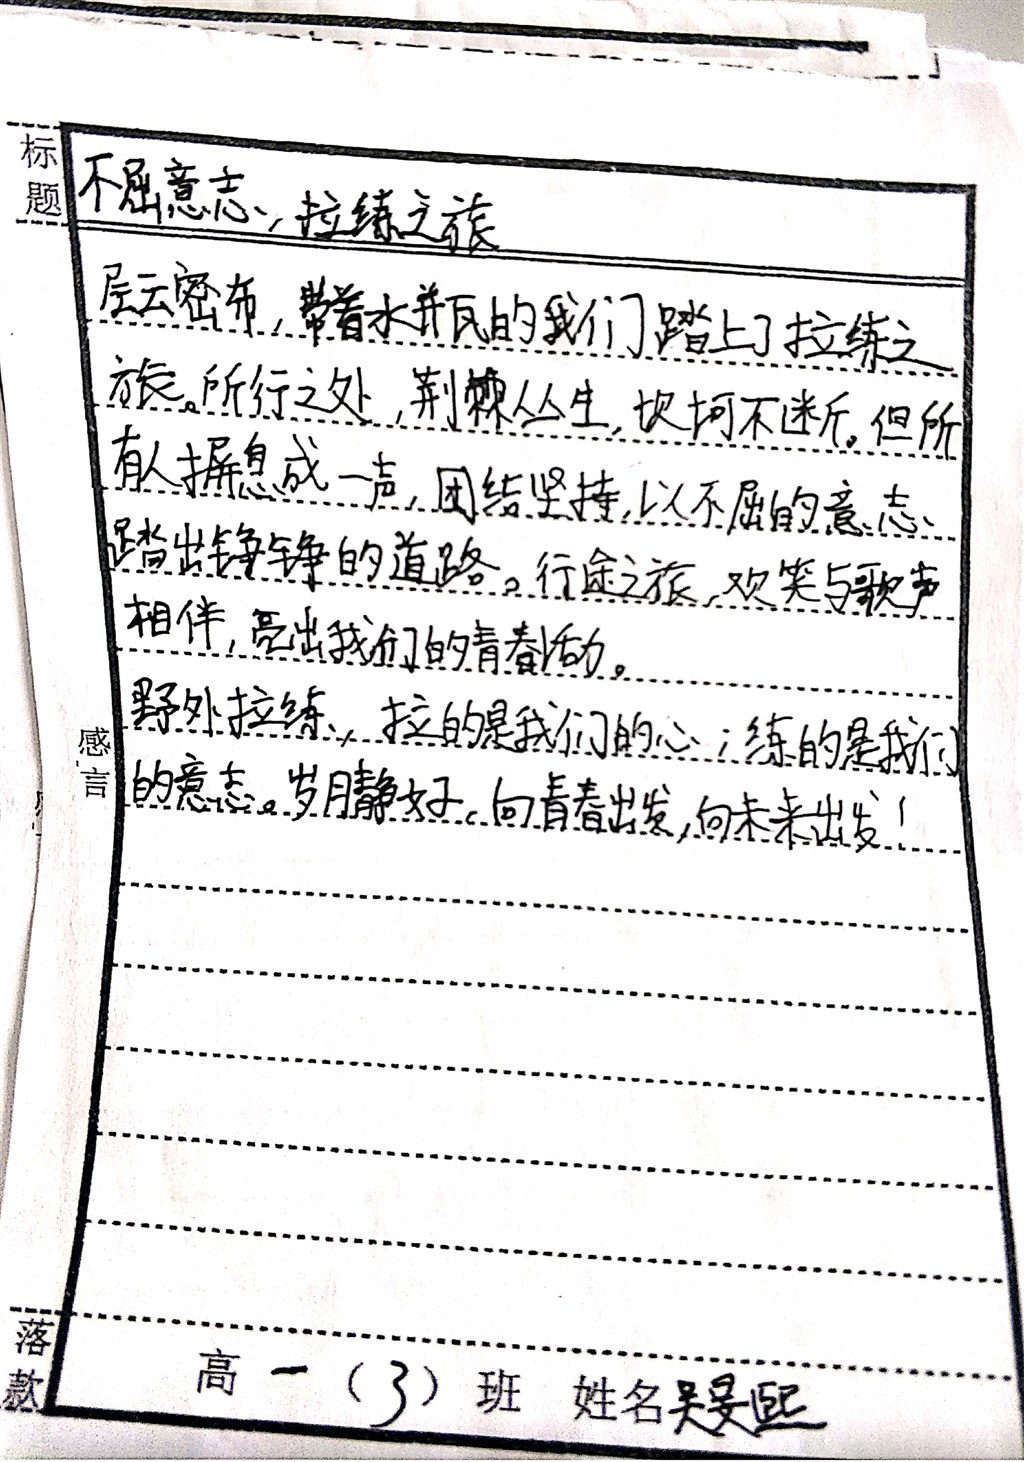 标题
不屈意志，拉练之旅
层云密布，带着水并瓦的我们踏上了拉练之
旅。所行之处，荆棘丛生，坎坷不断。但所
有人摒息成一声，团结坚持，以不屈的意志
踏出铮铮的道路。行途之旅，欢笑与歌声
相伴，亮出我们的青春活力。
野外拉练，拉的是我们的心；练的是我们
的意志。岁月静好，向青春出发，向未来出发！
感言
落款
高一（3）班 姓名吴旻熙